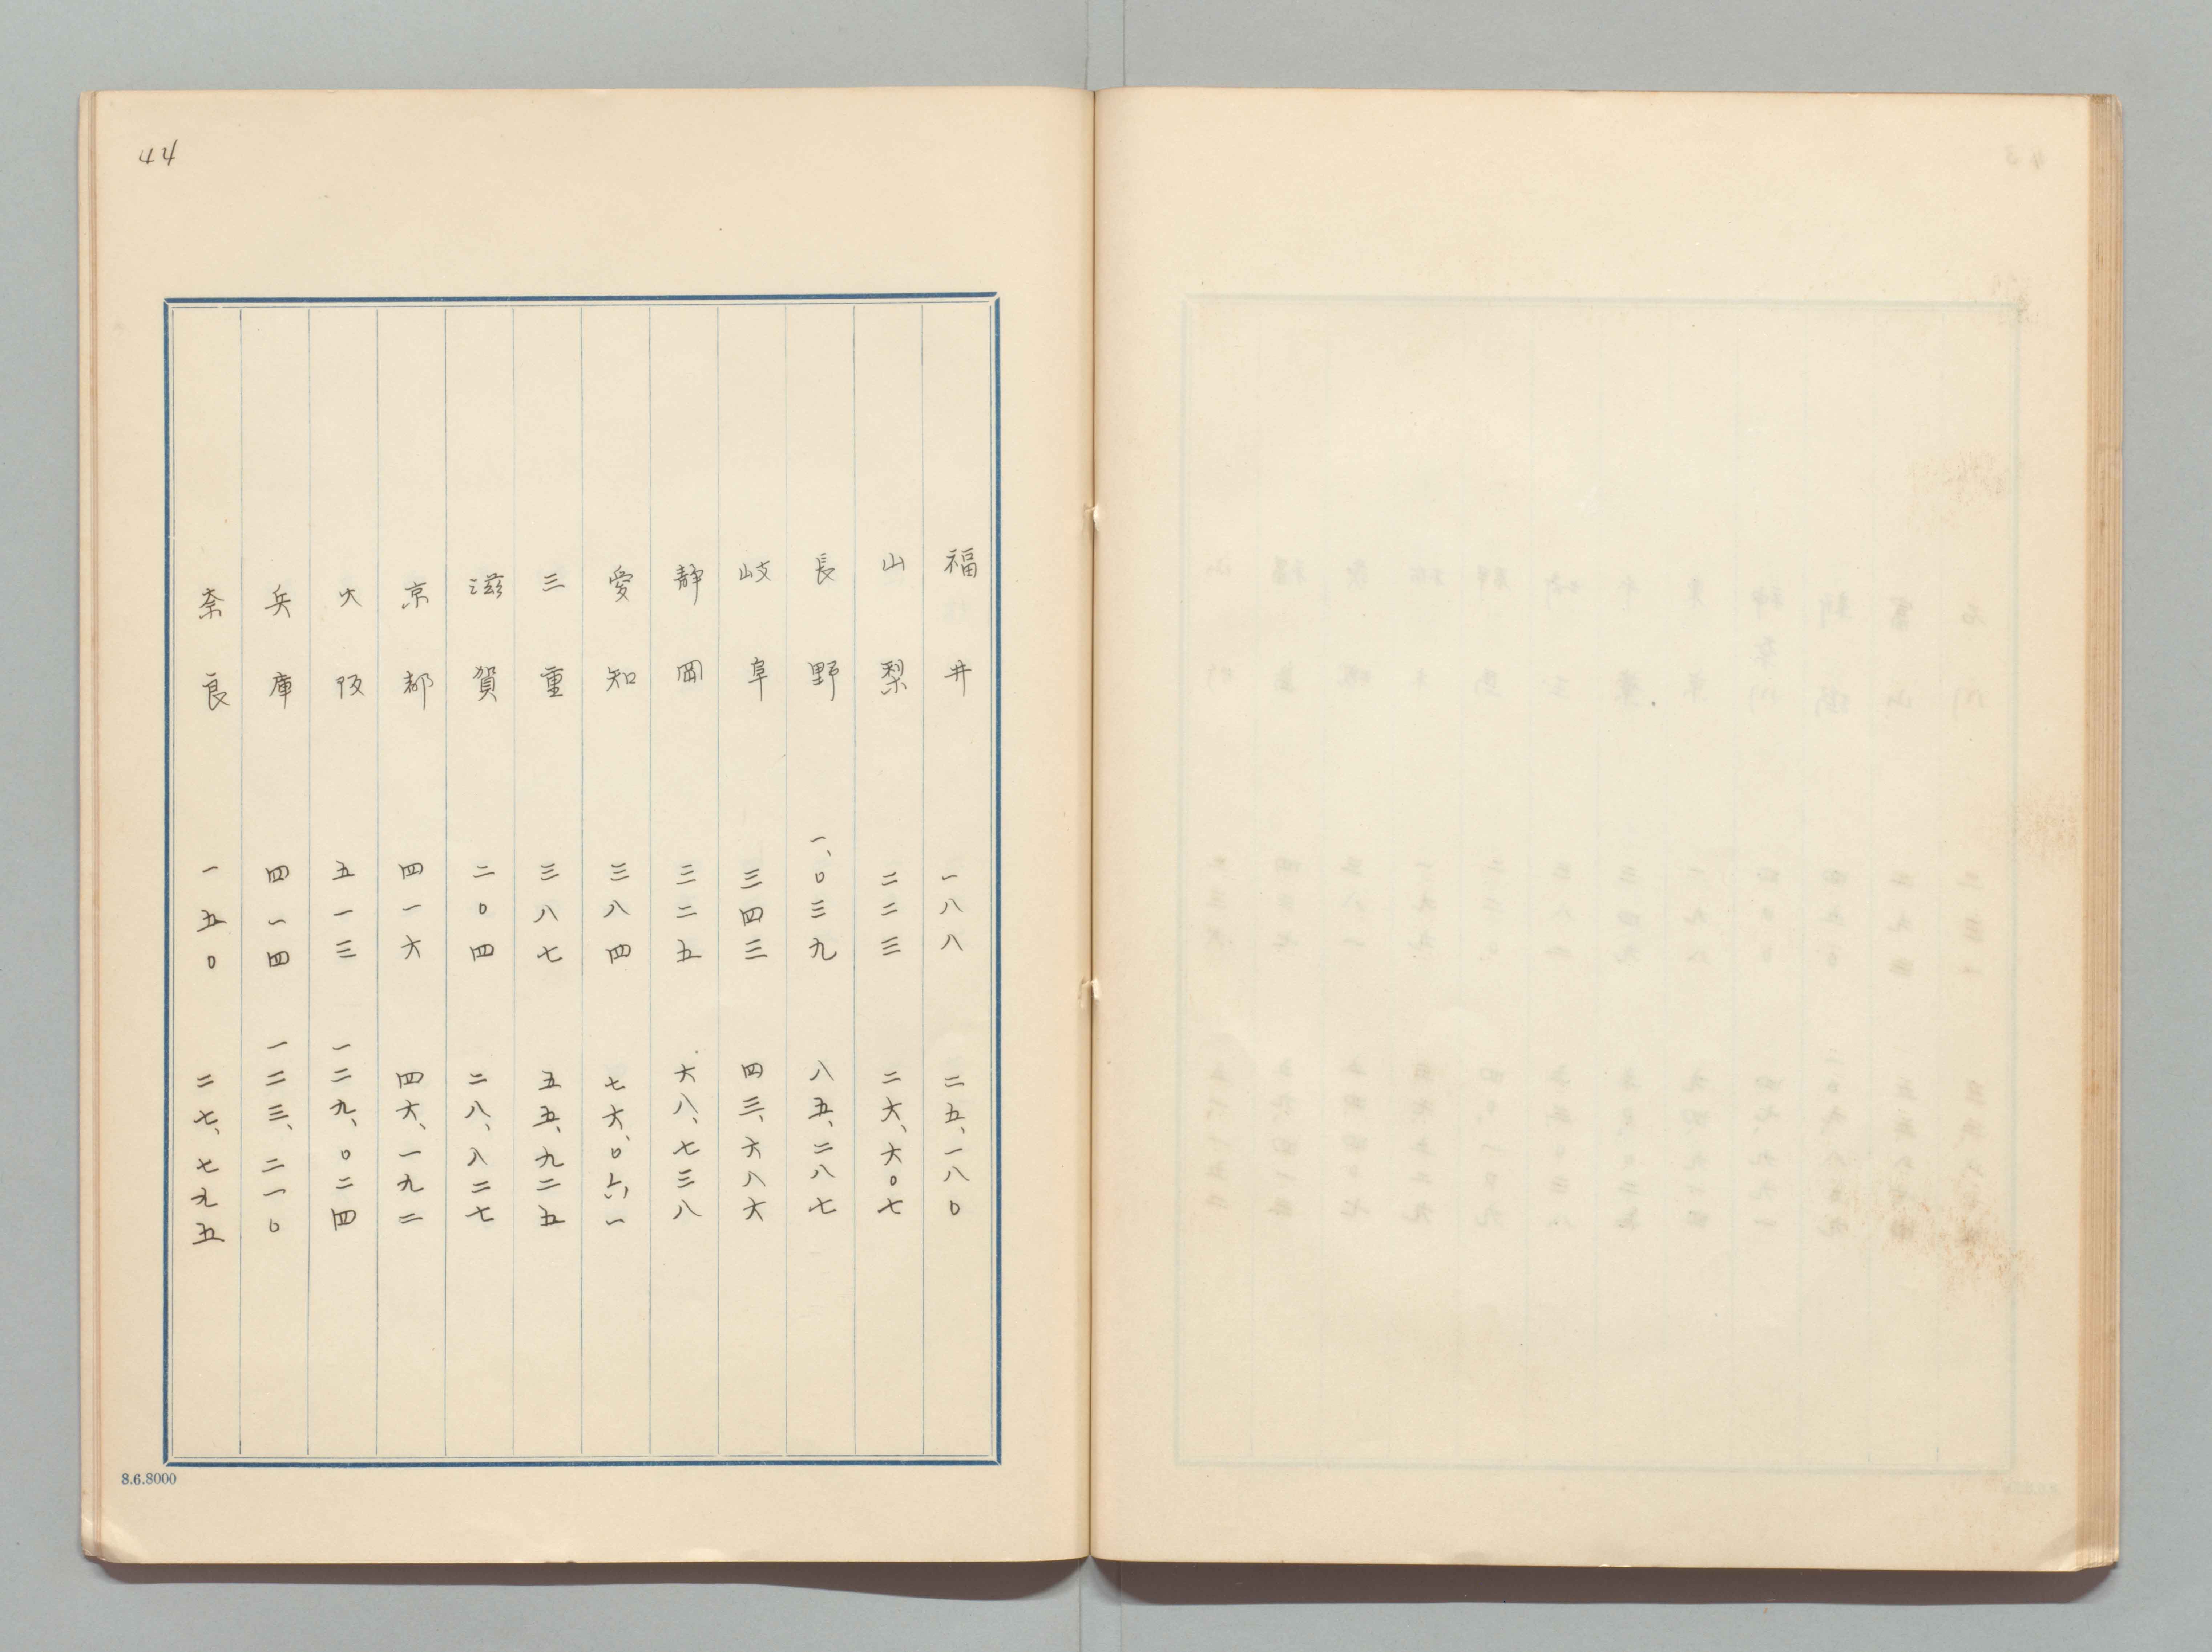 44
福井 一八八 二五、一八〇
山梨 二二三 二六、六〇七
長野 一、〇三九 八五、二八七
岐阜 三四三 四三、六八六
静岡 三二五 六八、七三八
愛知 三八四 七六、〇六一
三重 三八七 五五、九二五
滋賀 二〇四 二八、八二七
京都 四一六 四六、一九二
大阪 五一三 一二九、〇二四
兵庫 四一四 一二三、二一〇
奈良 一五〇 二七、七九五
8.6.8000